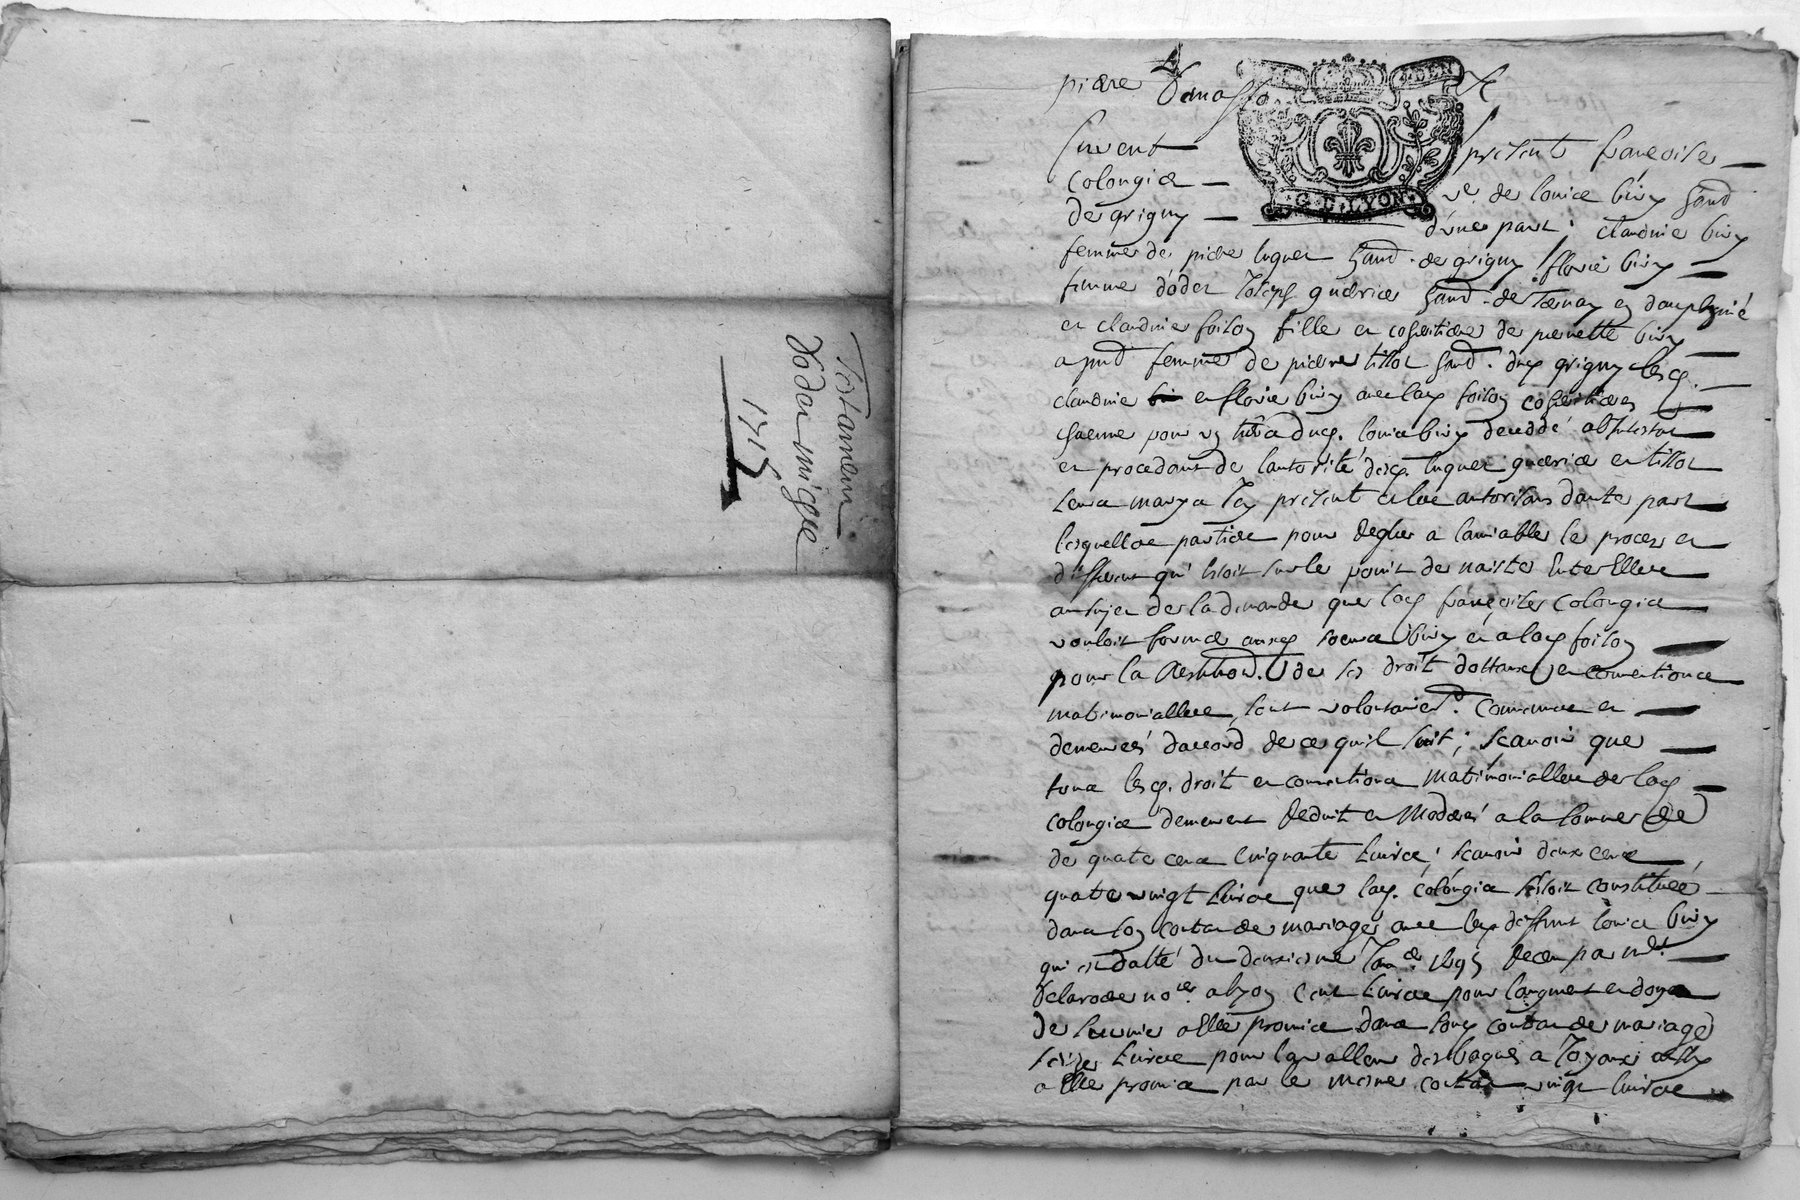 Testamen
d'oda migge
1715
G. D. LYON
furent present francoise
Colongie ve. de louis biry hand
de grigny d'une part; claudine biry
femme de piere luquet hand. de grigny florie biry
femme d'odet Joseph guerrie hand. de ternay en dauphiné
et claudine foilon fille et coheritiere de pierrette biry
a pnt femme de pierre tillot hand. dud grigny lesd.
claudine et florie biry avec lad foilon coheritieres
dud. louis biry decedé abintestat
et procedant de l'autorité desd. luquet guerrie et tillot
leurs marys Icy present et les autorisans d'autre part
lesquelles parties pour regler a l'amiable le proces et
different qui estoit sur le point de naistre Entre Elles
au sujet de la demande que lad francoise Colongie
vouloit former ausd soeurs biry et a lad foilon
pour la restitution. de ses droit dottaux et conventions
matrimonialles, sont volontairemt. convenues et
demeureés d'accord de ce qu'il suit; scavoir que
tous lesd. droit et conventions matrimonialles de lad
colongie demeurent reduit et moderés a la somme de
de quatre cens cinquante livres; scavoir deux cens
quatre vingt livres que lad. colongie s'estoit constituée
dans son contrat de mariage avec led deffunt louis biry
qui est datté du deuxieme 1695 receu par me.
delaroere nore. a lyon cent livres pour l'augment et
de survie a elle promis dans sond contrat de mariage
seize livres pour la valleur des bagues et Joyaux aussy
a elle promis par le mesme contrat vingt livres